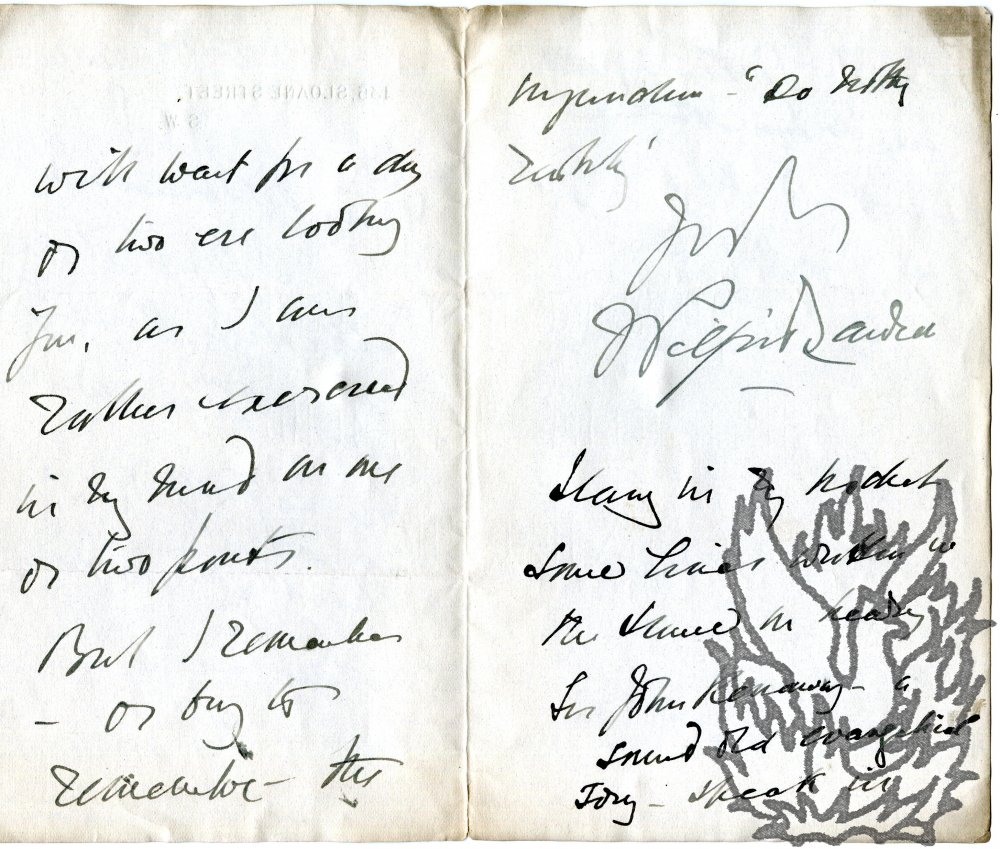 will wait for a day
or two ere looking
for, as I am
rather exercised
in my mind on one
or two points.
But I remember
– or try to
remember – the
– "Do nothing
rashly"
Wilfrid Lawson
I have in my pocket
some lines written in
the House on hearing
Sir John Kennaway – a
sound old evangelical
Tory – speak in